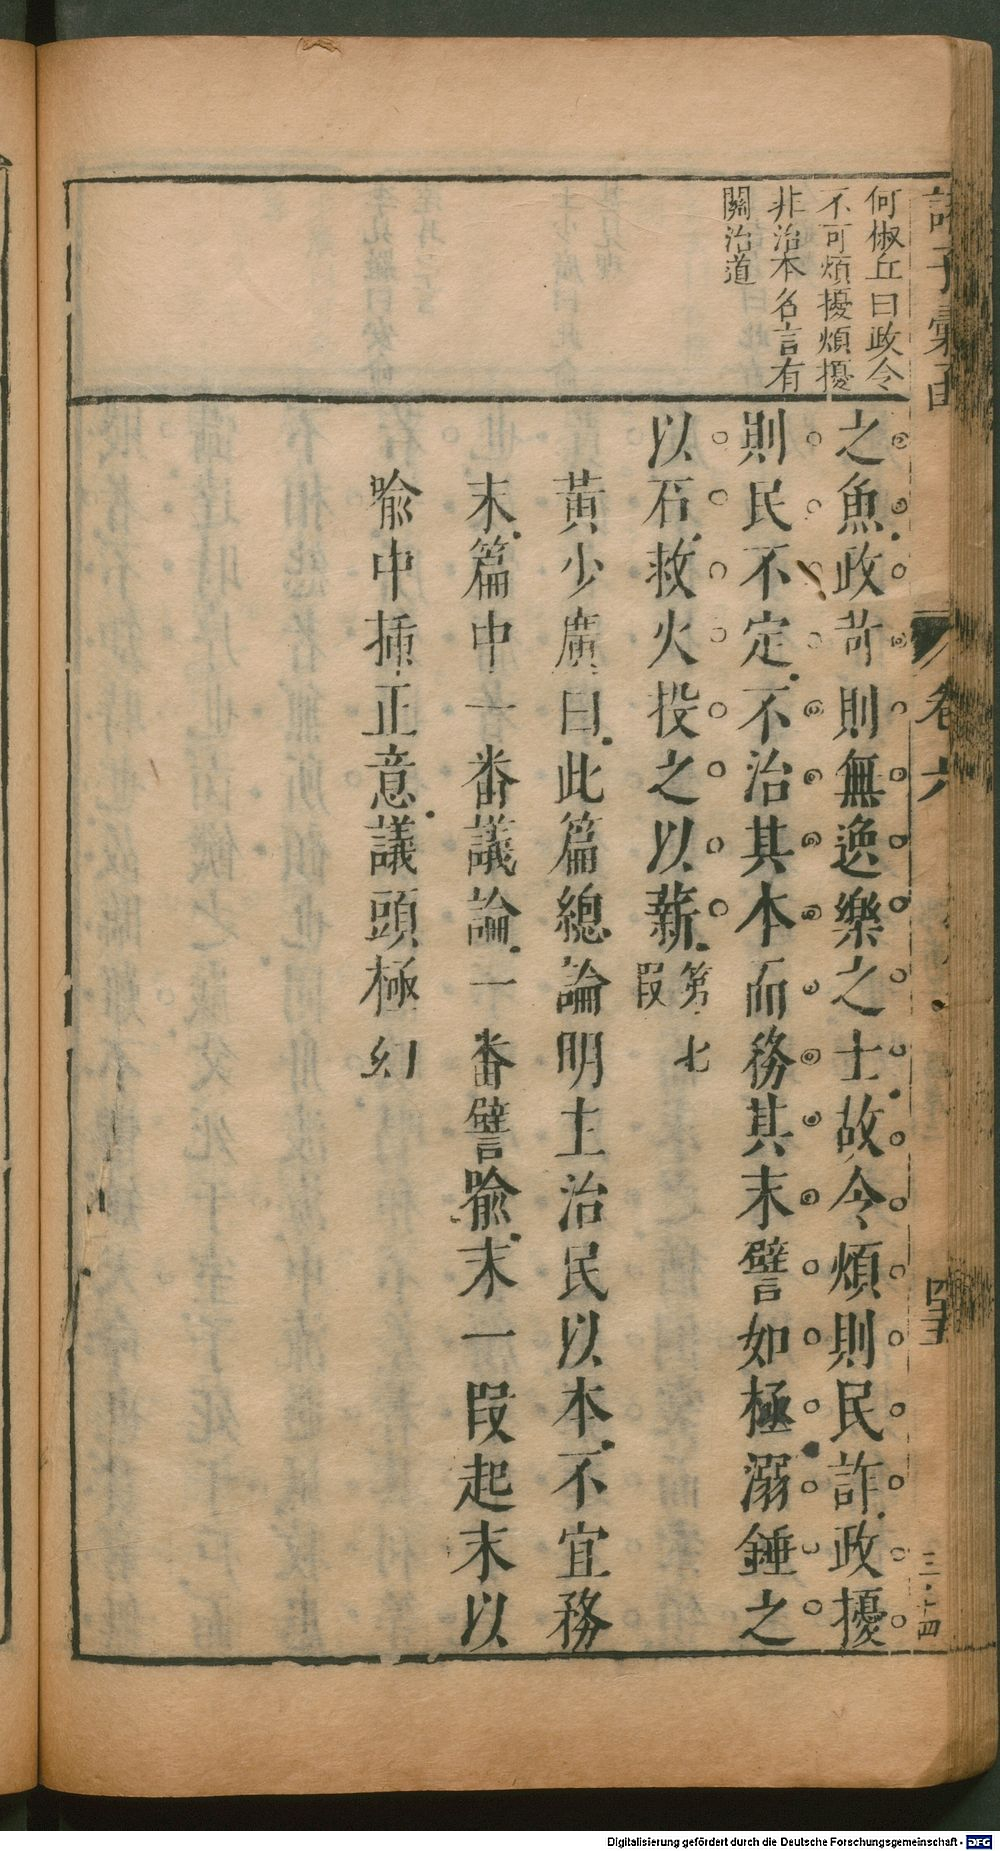 何俶丘曰政令
不可煩擾煩擾
非治本名言有
關治道
之魚政苛則無逸樂之士故令煩則民詐政擾
則民不定不治其本而務其末譬如極溺錘之
以石救火投之以薪第七
段
黃少廣曰此篇總論明主治民以本不宜務
末篇中一番議論一番譬喻末一段起末以
喻中揷正意議頭極幻
卷六
Digitalisierung gefördert durch die Deutsche Forschungsgemeinschaft - DFG